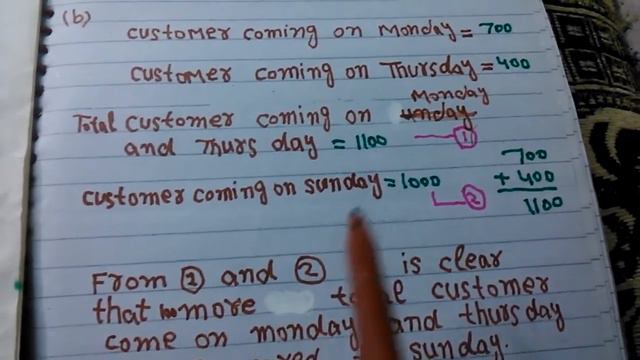 (b)
customer coming on Monday = 700
customer coming on Thursday = 400
Monday
Total customer coming on unday
and Thurs day = 1100 ①
700
+ 400
1100
customer coming on sunday = 1000 ②
From ① and ② is clear
that more customer
come on monday and thursday
sunday.